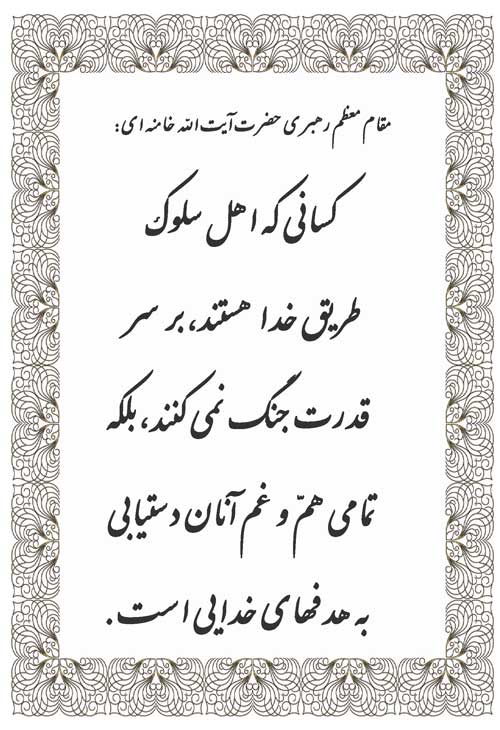 مقام معظم رهبری حضرت آیت الله خامنه ای:
کسانی که اهل سلوک
طریق خدا هستند، بر سر
قدرت جنگ نمی کنند، بلکه
تمامی همّ و غم آنان دستیابی
به هدفهای خدایی است.